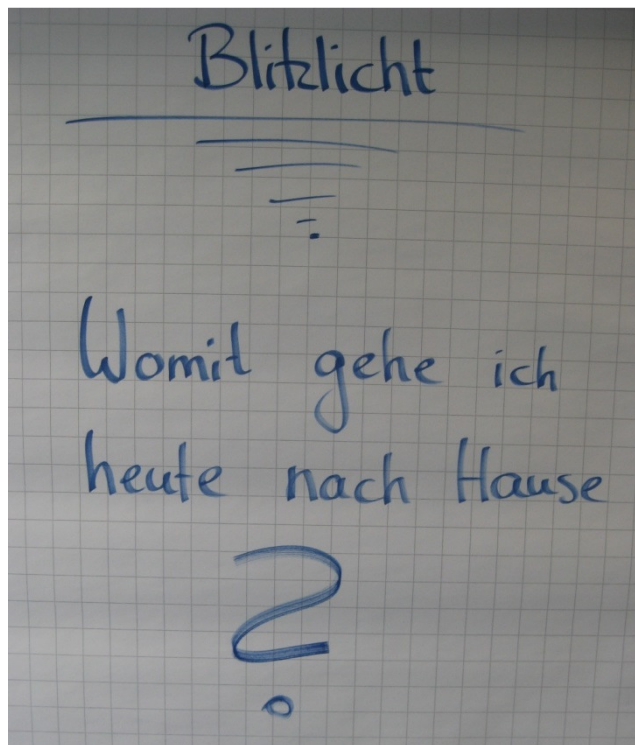 Blitzlicht
Womit gehe ich
heute nach Hause
?